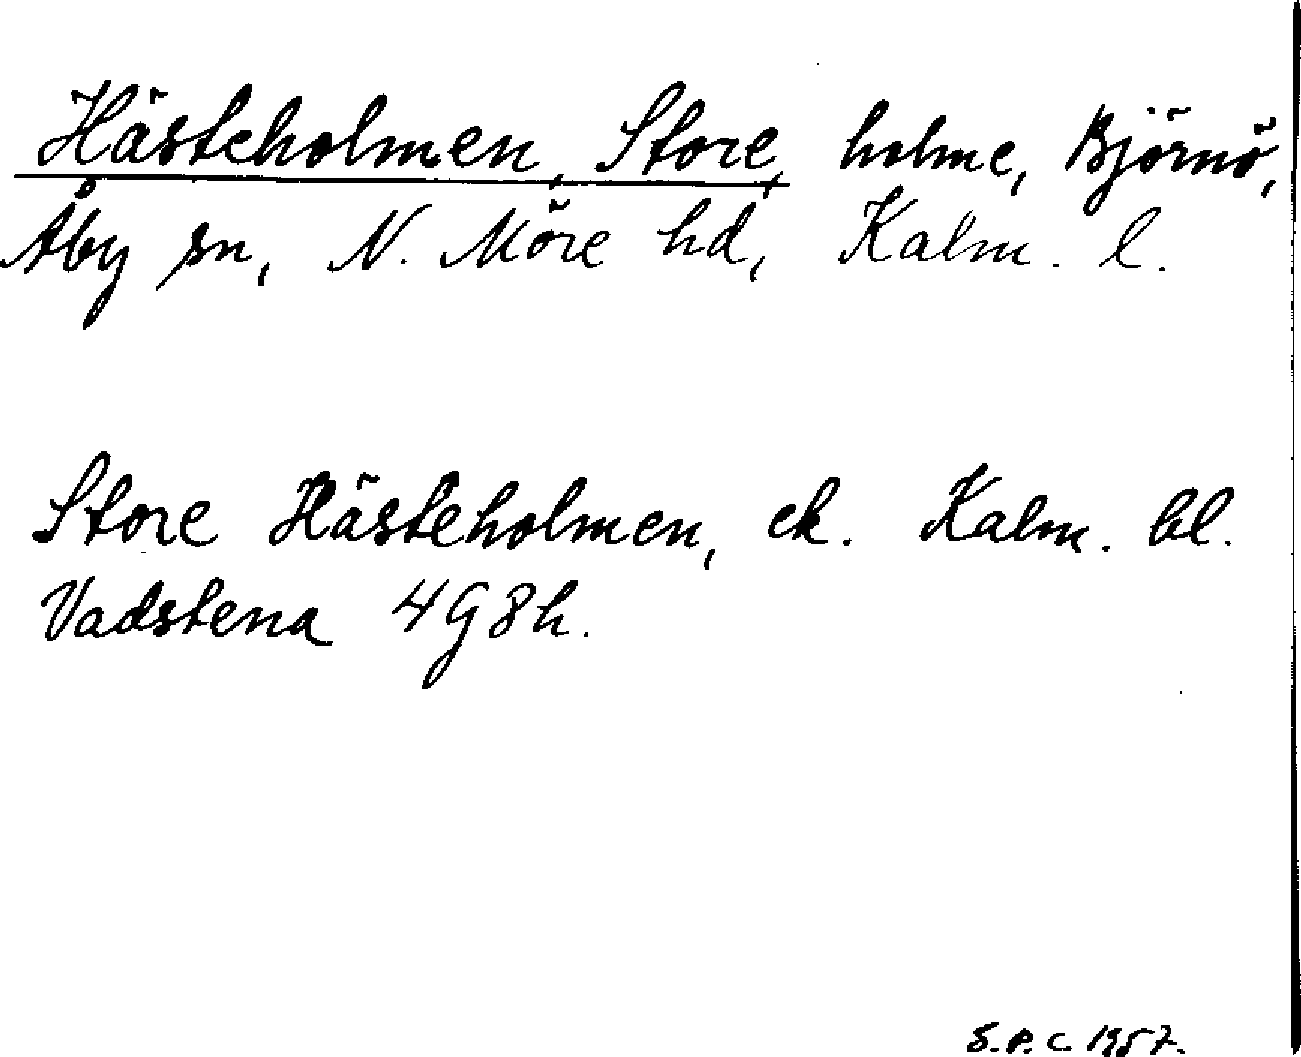 Hästeholmen, Store, holme, Björnö,
Åby sn, N. Möre hd, Kalm. l.
Store Hästeholmen, ek. Kalm. bl.
Vadstena 4G8h.
S.P.C 1957.